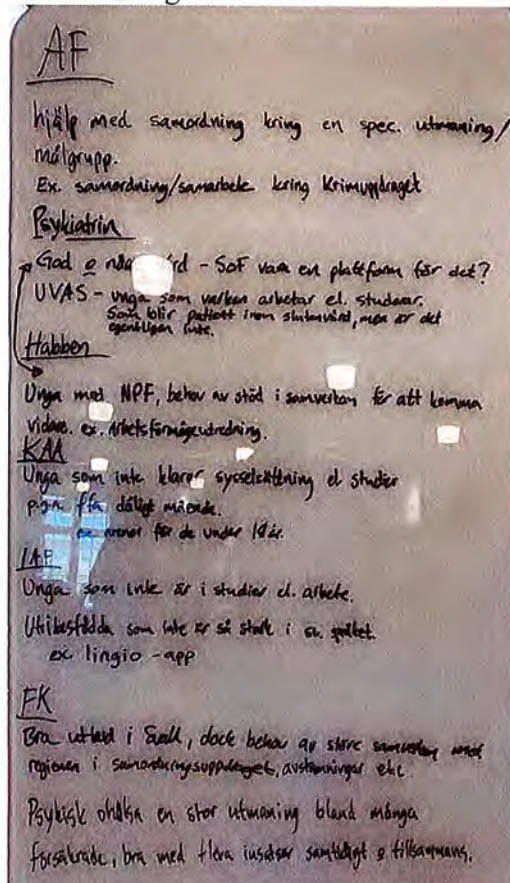 AF
hjälp med samordning kring en spec. utmaning/
målgrupp.
Ex. samordning/samarbete kring Krimuppdraget
Psykiatrin
God o nära vård - SoF vara en plattform för det?
UVAS - unga som varken arbetar el. studerar.
Som blir patient inom slutenvård, men är det
egentligen inte.
Habben
Unga med NPF, behov av stöd i samverkan för att komma
vidare. ex. Arbetsförmågeutredning.
KAA
Unga som inte klarar sysselsättning el studier
p.g.a. ffa dåligt mående.
ex arenor för de under 18 år.
IAP
Unga som inte är i studier el. arbete.
Utrikesfödda som inte är så stark i sv. språket.
ex. lingio - app
FK
Bra i dock behov av större samverkan med
regionen i samordningsuppdraget, avstämningar etc
Psykisk ohälsa en stor utmaning bland många
försäkrade, bra med flera insatser samtidigt o tillsammans.